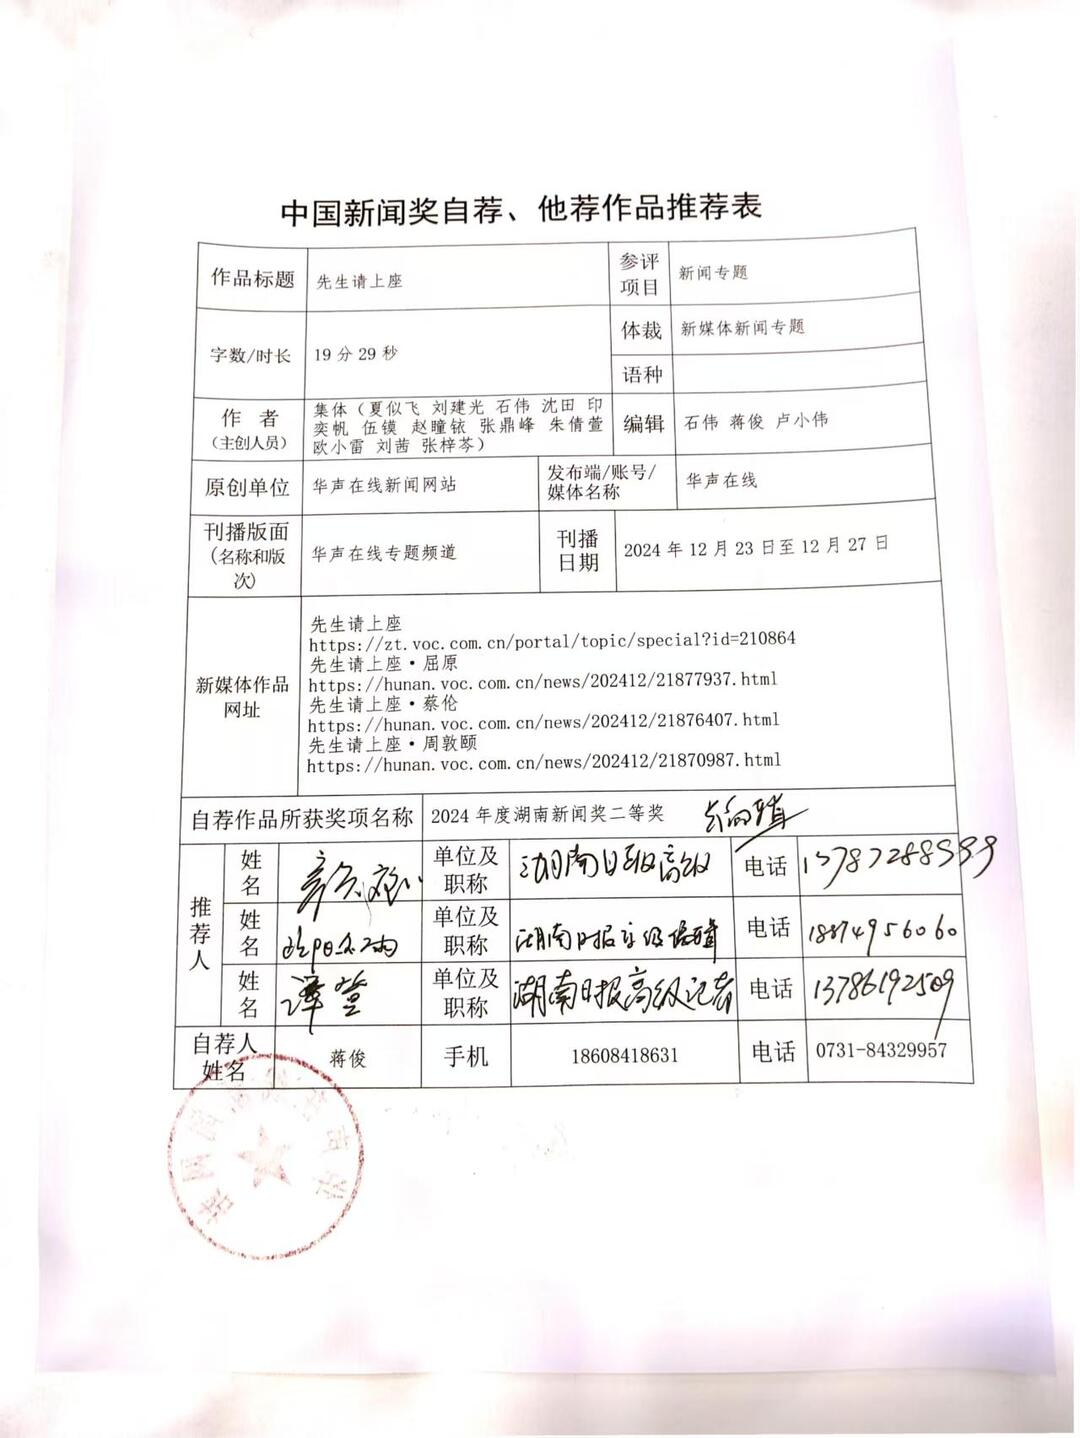 中国新闻奖自荐、他荐作品推荐表
作品标题 先生请上座 参评项目 新闻专题
字数/时长 19分29秒 体裁 新媒体新闻专题
语种
作 者
(主创人员)
集体（夏似飞 刘建光 石伟 沈田 印
奕帆 伍镆 赵瞳铱 张鼎峰 朱倩萱
欧小雷 刘茜 张梓芩）
编辑 石伟 蒋俊 卢小伟
原创单位 华声在线新闻网站 发布端/账号/
媒体名称 华声在线
刊播版面
(名称和版
次)
华声在线专题频道
刊播
日期
2024年12月23日至12月27日
新媒体作品
网址
先生请上座
https://zt.voc.com.cn/portal/topic/special?id=210864
先生请上座·屈原
https://hunan.voc.com.cn/news/202412/21877937.html
先生请上座·蔡伦
https://hunan.voc.com.cn/news/202412/21876407.html
先生请上座·周敦颐
https://hunan.voc.com.cn/news/202412/21870987.html
自荐作品所获奖项名称 2024年度湖南新闻奖二等奖
推荐人
姓名 单位及职称 湖南日报高级 电话
姓名 单位及职称 湖南日报 电话 18874956060
姓名 谭萱 单位及职称 湖南日报高级记者 电话 13786192509
自荐人
姓名 蒋俊 手机 18608418631 电话 0731-84329957